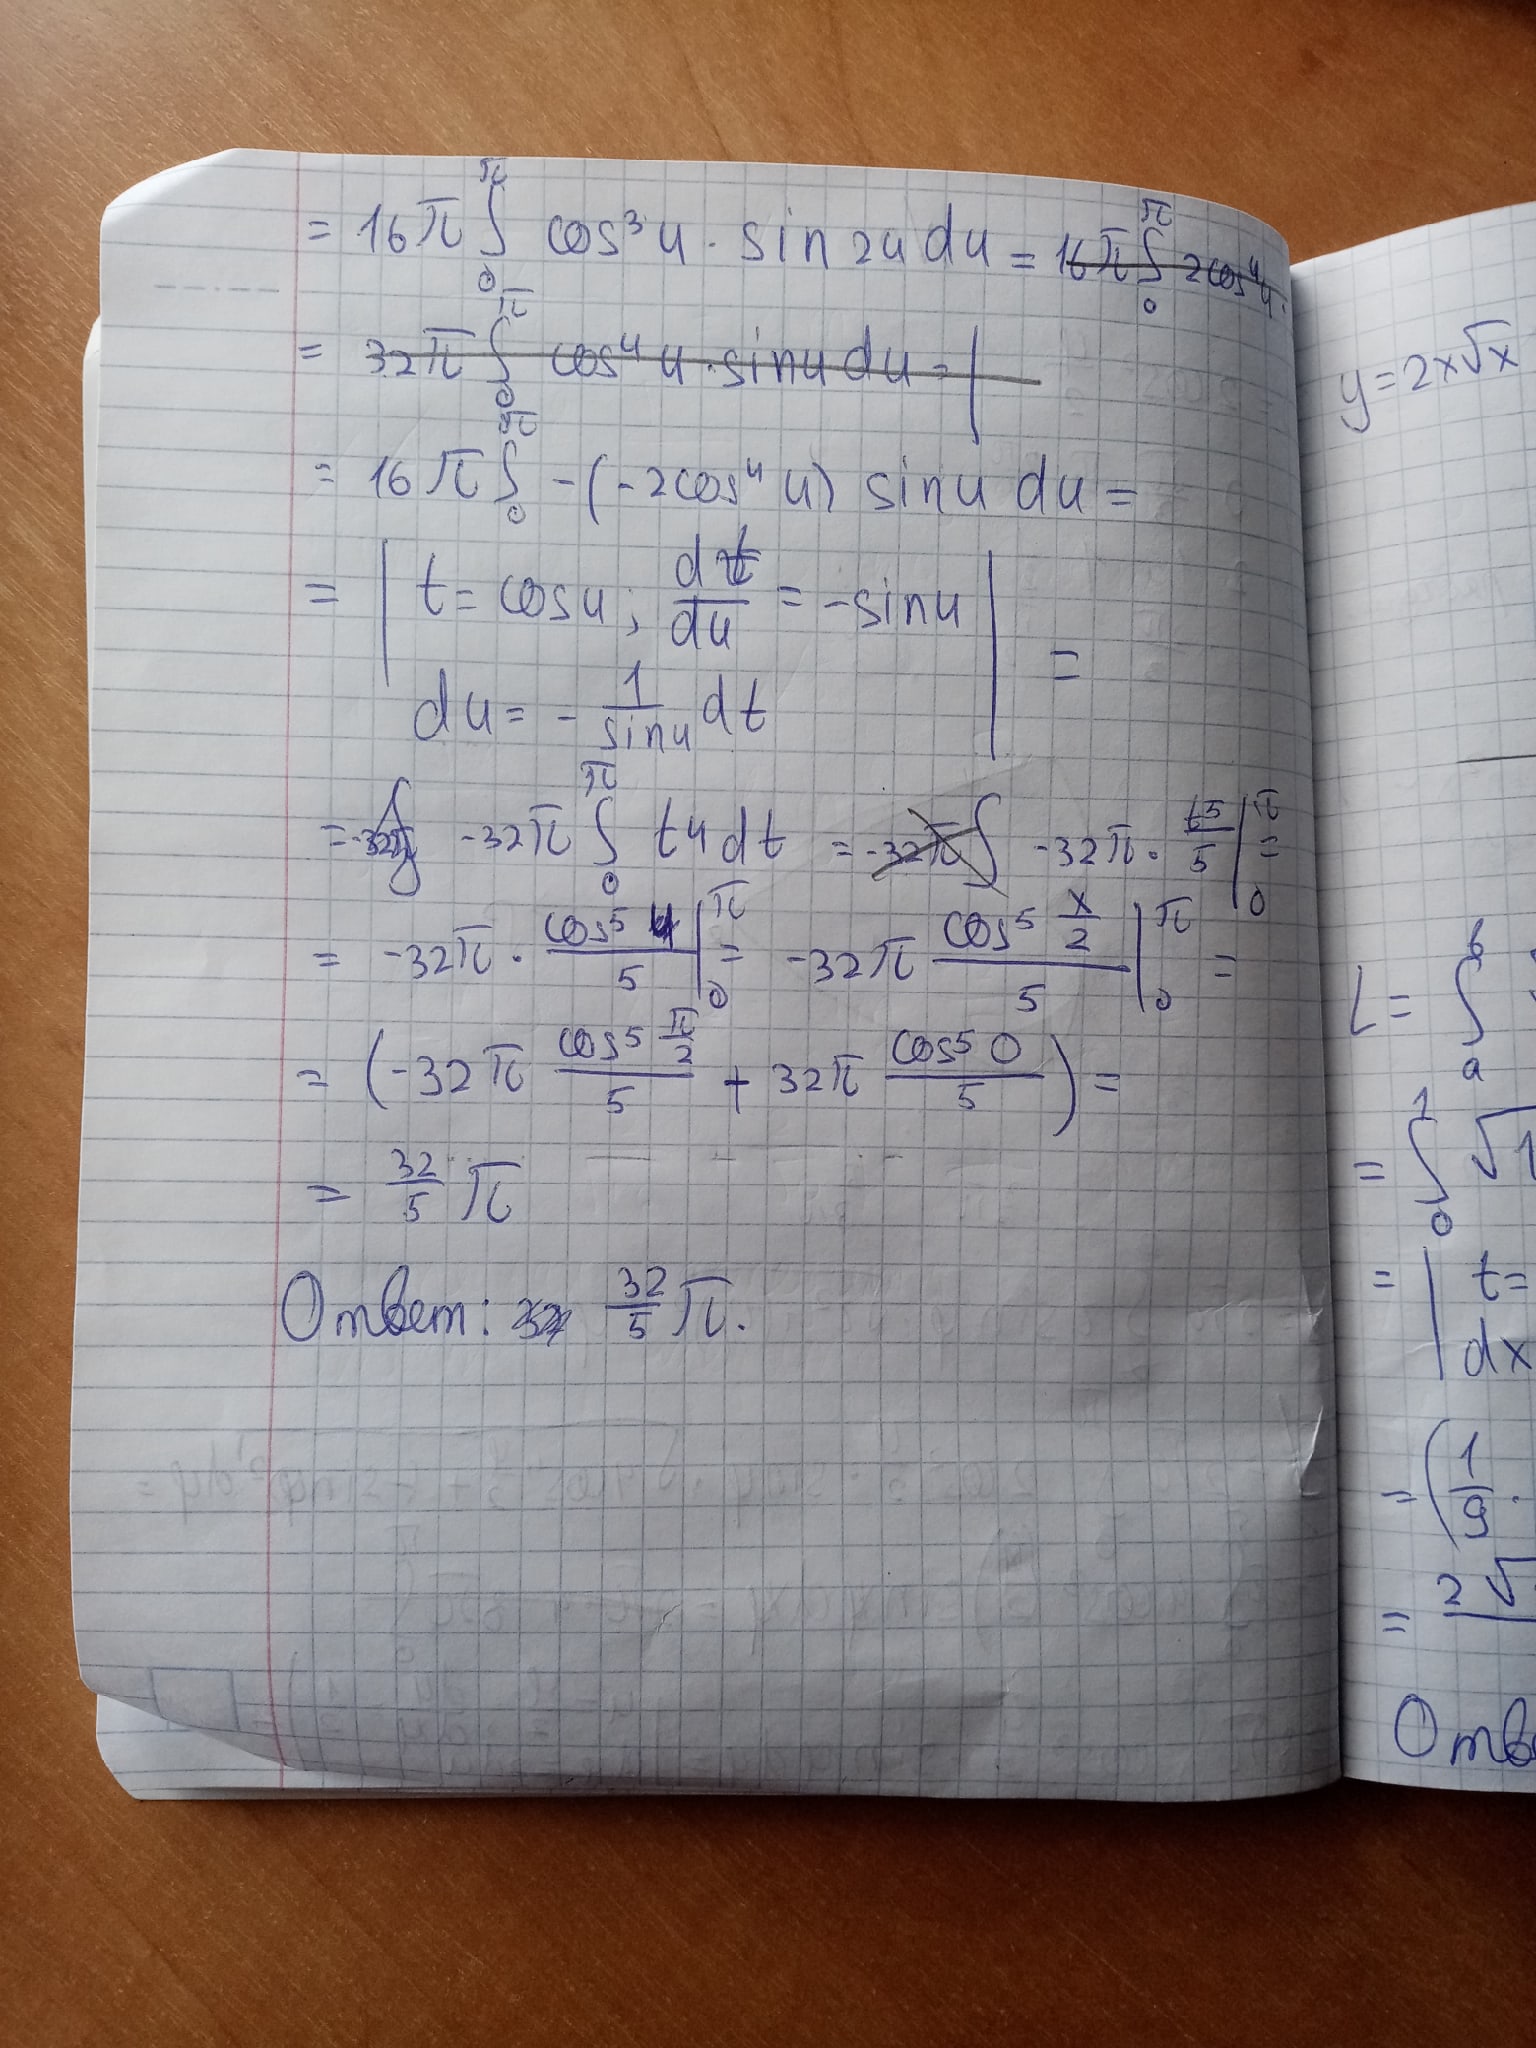 = 16π ∫₀^π cos³u · sin2u du = 16π ∫₀^π 2cos⁴u ·
= 32π ∫₀^π cos⁴u · sinu du =
= 16π ∫₀^π -(-2cos⁴u) sinu du =
= | t = cosu; dt/du = -sinu | =
du = - 1/sinu dt
= -32π ∫₀^π t⁴dt = -32π ∫ -32π · t⁵/5 |₀^π =
= -32π · cos⁵u/5 |₀^π = -32π cos⁵ x/2 /5 |₀^π =
= (-32π cos⁵ π/2 /5 + 32π cos⁵0/5) =
= 32/5 π
Ответ: 32/5 π.
y = 2x√x
L = ∫ₐᵇ
= ∫₀¹ √1
= | t =
dx
= (1/9 ·
= 2√
Отве